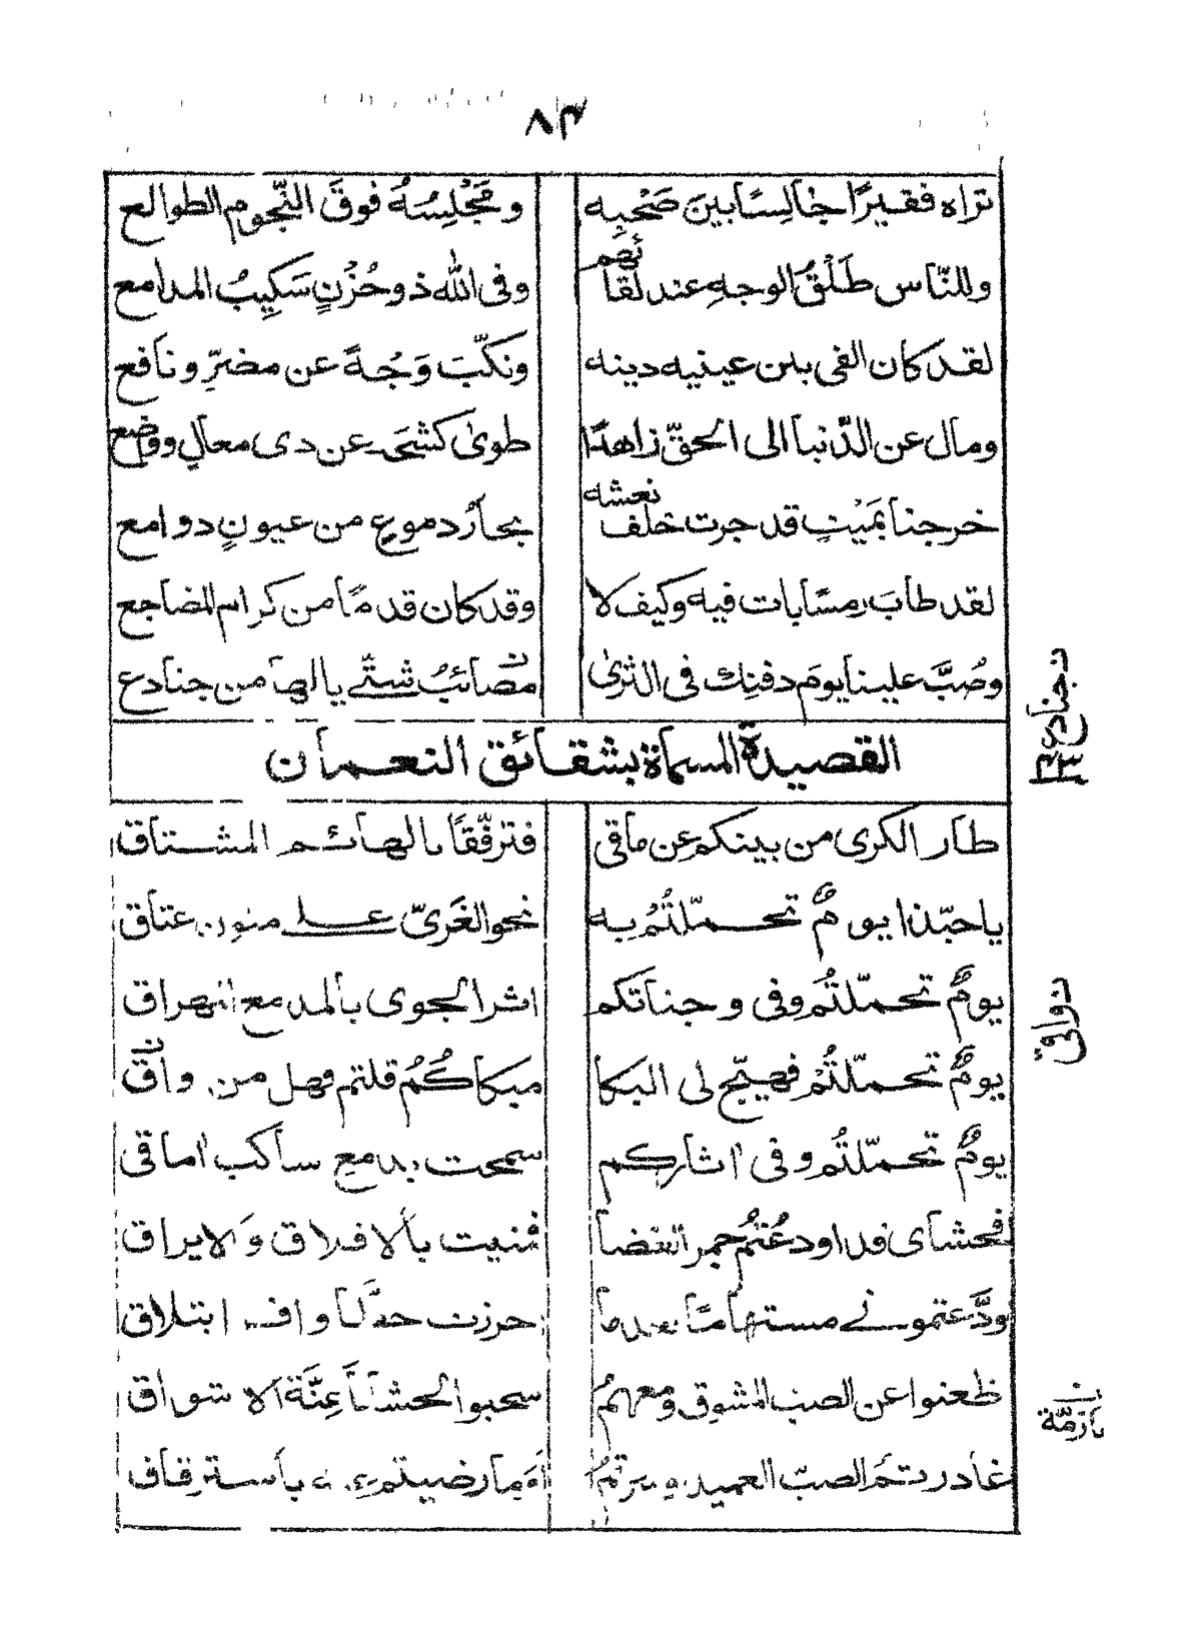 ٨٣
تراه فقيرًا جالسًا بينَ صَحْبِه ومَجْلِسُهُ فوقَ النّجوم الطوالع
وللنّاس طَلْقُ الوجهِ عند لقائهم وفى الله ذو حُزْنٍ سَكِيبُ المدامع
لقد كان الفى بين عينيه دينه ونكّبَ وَجْهةً عن مضرٍّ ونافع
ومال عن الدّنيا الى الحقّ زاهدًا طوىٰ كشحَى عن دى معالٍ ووضع
خرجنا بمَيْتٍ قد جرت خلف نعشه بحارُ دموعٍ من عيونٍ دوامع
لقد طابَ رمسًا بات فيه وكيف لا وقد كان قدمًا من كرام المضاجع
وصُبَّ علينا يومَ دفنك فى الثرىٰ مصائبُ شتّى يا الها من جنادع
ن جنادع ١٢
القصيدة المسماة بشقائق النعمان
طار الكرى من بينكم عن ماقى فترفّقًا بالهائم المشتاق
ياحبّذا يومٌ تحمّلتُمُ به نحو الغَرىّ على متون عتاق
يومٌ تحمّلتُم وفى وجناتكم اثر الجوى بالمدمع المهراق
يومٌ تحمّلتُمْ فهيّج لى البكا مبكاكُمُ قلتم فهل من واق
ن واقى
يومٌ تحمّلتُم وفى اثاركم سمحت بدمعٍ ساكب اماقى
فحشاى قد اودعْتُمُ جمر الغضا فنيت بالافلاق والايراق
ودَّعتمونى مستهامًا بعدما حرزت ابتلاق
ظعنوا عن الصب المشوق ومعهمُ سحبوا الحشا باَعِنَّة الاشواق
ن بازمّة
غادرتم الصبّ العميد اَوَما رضيتم باسترقاق